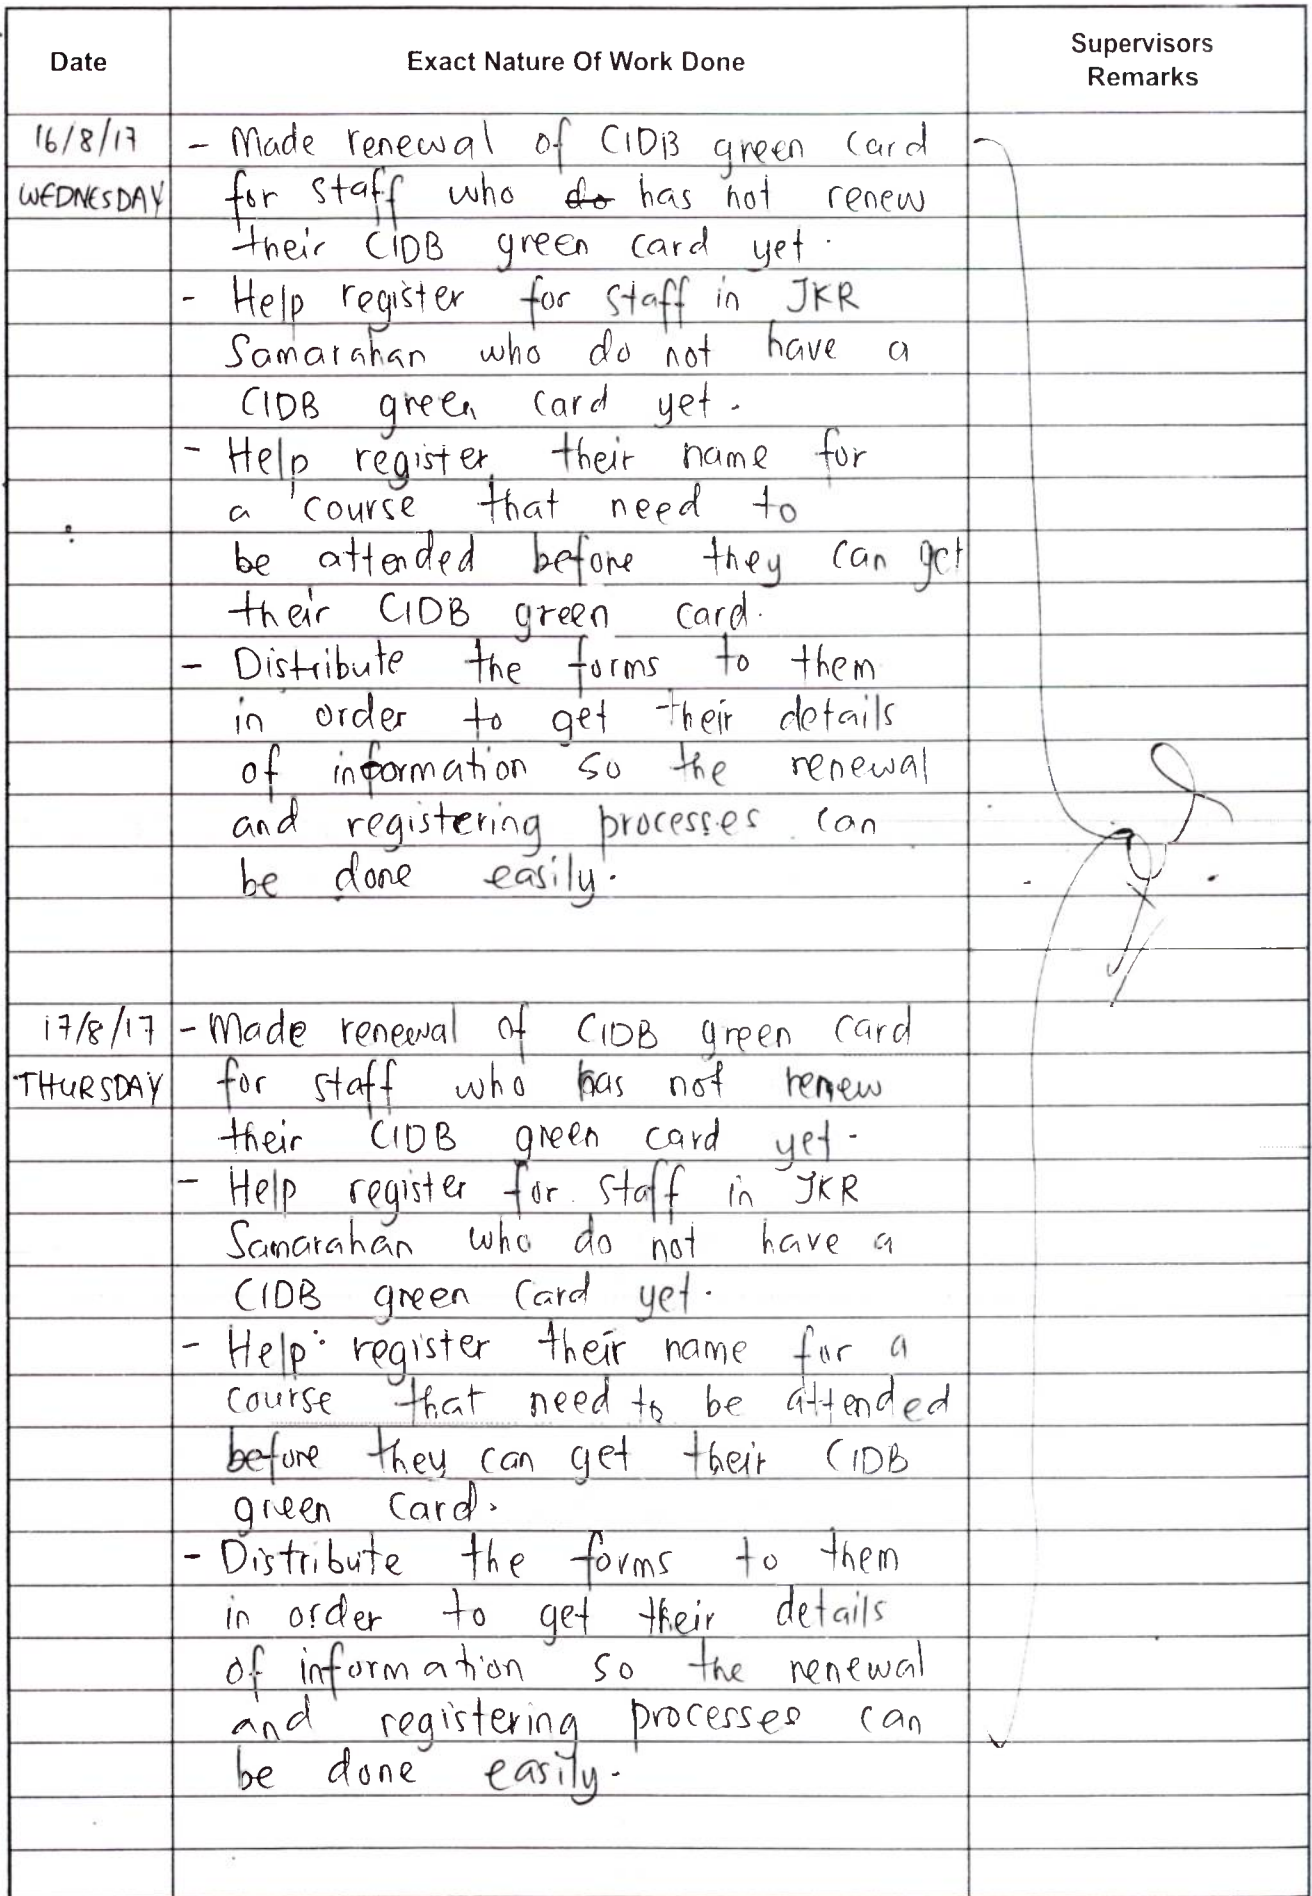 Date Exact Nature Of Work Done Supervisors
Remarks
16/8/17 - Made renewal of CIDB green card
WEDNESDAY for staff who do has not renew
their CIDB green card yet.
- Help register for staff in JKR
Samarahan who do not have a
CIDB green card yet.
- Help register their name for
a course that need to
be attended before they can get
their CIDB green card.
- Distribute the forms to them
in order to get their details
of information so the renewal
and registering processes can
be done easily.
17/8/17 - Made renewal of CIDB green card
THURSDAY for staff who has not renew
their CIDB green card yet.
- Help register for staff in JKR
Samarahan who do not have a
CIDB green card yet.
- Help register their name for a
course that need to be attended
before they can get their CIDB
green card.
- Distribute the forms to them
in order to get their details
of information so the renewal
and registering processes can
be done easily.